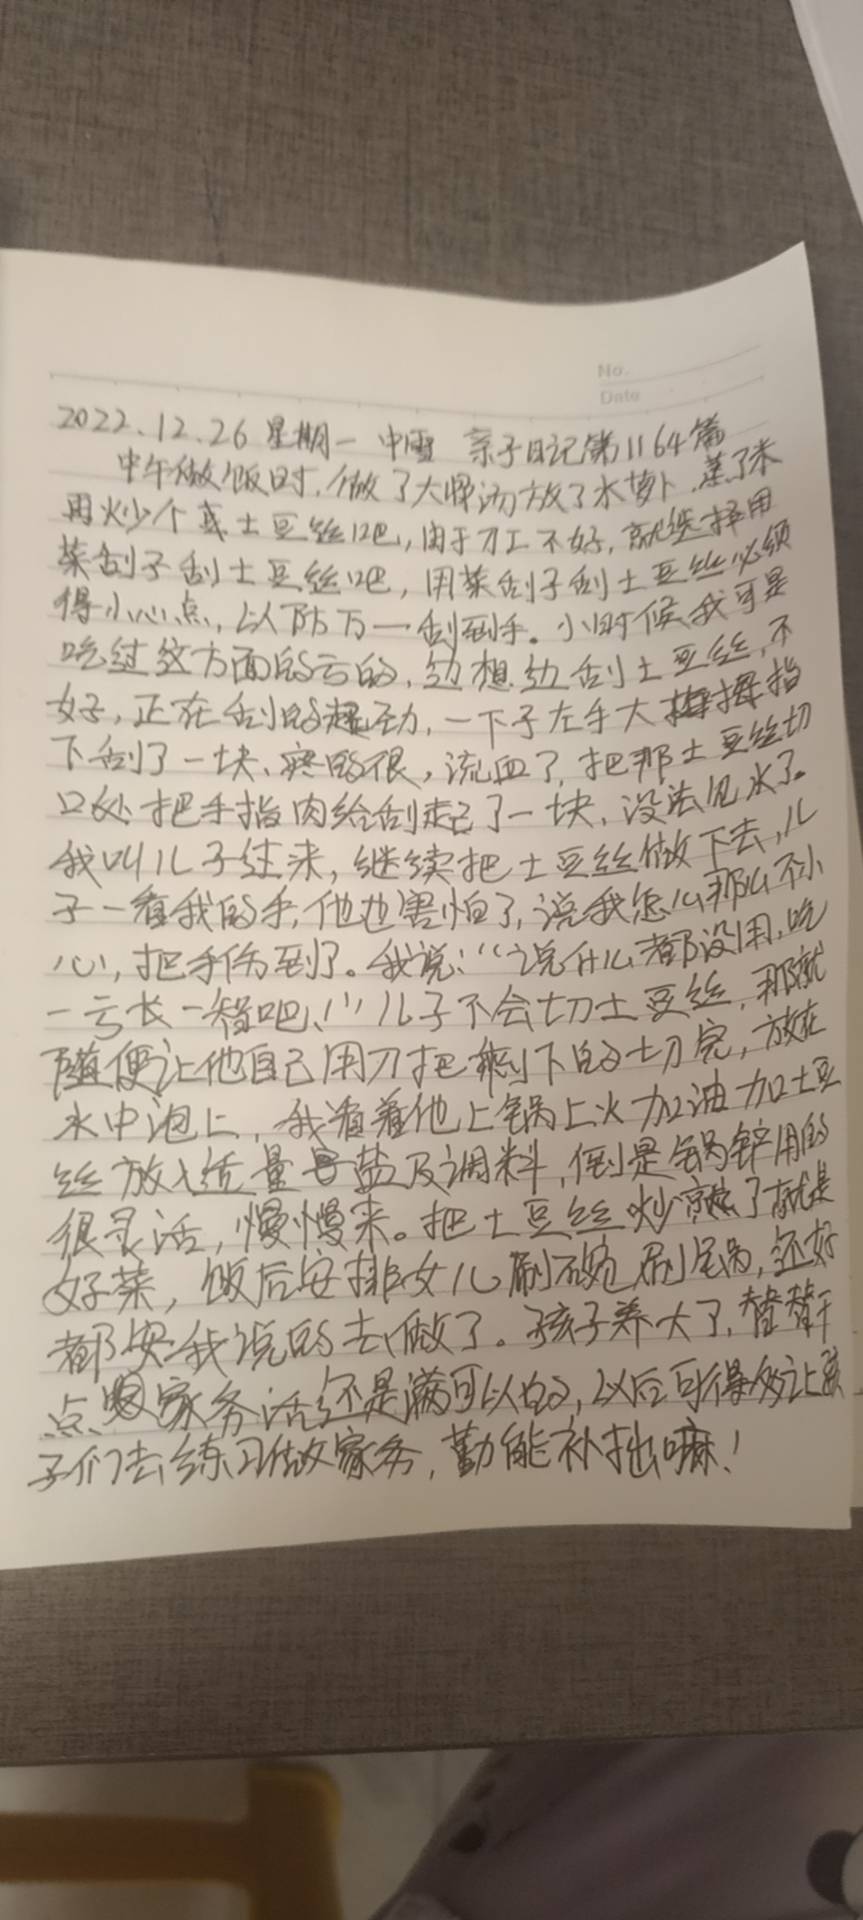 No.
Date
2022.12.26 星期一 中雪 亲子日记第1164篇
中午做饭时,做了大骨汤放了水萝卜,蒸了米
再炒个菜土豆丝吧,由于刀工不好,就选择用
菜刮子刮土豆丝吧,用菜刮子刮土豆丝必须
得小心点,以防万一刮到手。小时候我可是
吃过这方面的亏的,边想边刮土豆丝,不
好,正在刮的起劲,一下子左手大拇指
下刮了一块、疼的很,流血了,把那土豆丝切
口处把手指肉给刮起了一块,没法见水了。
我叫儿子过来,继续把土豆丝做下去,儿
子一看我的手,他也害怕了,说我怎么那么不小
心,把手伤到了。我说:“说什么都没用,吃
一亏长一智吧!”儿子不会切土豆丝,那就
随便让他自己用刀把剩下的切完,放在
水中泡上,我看着他上锅上火加油加土豆
丝放入适量盐及调料,倒是锅铲用的
很灵活,慢慢来。把土豆丝炒熟了就是
好菜,饭后安排女儿刷碗刷锅,还好
都按我说的去做了。孩子养大了,替替干
点家务活还是满可以的,以后可得多让孩
子们去练习做家务,勤能补拙嘛!